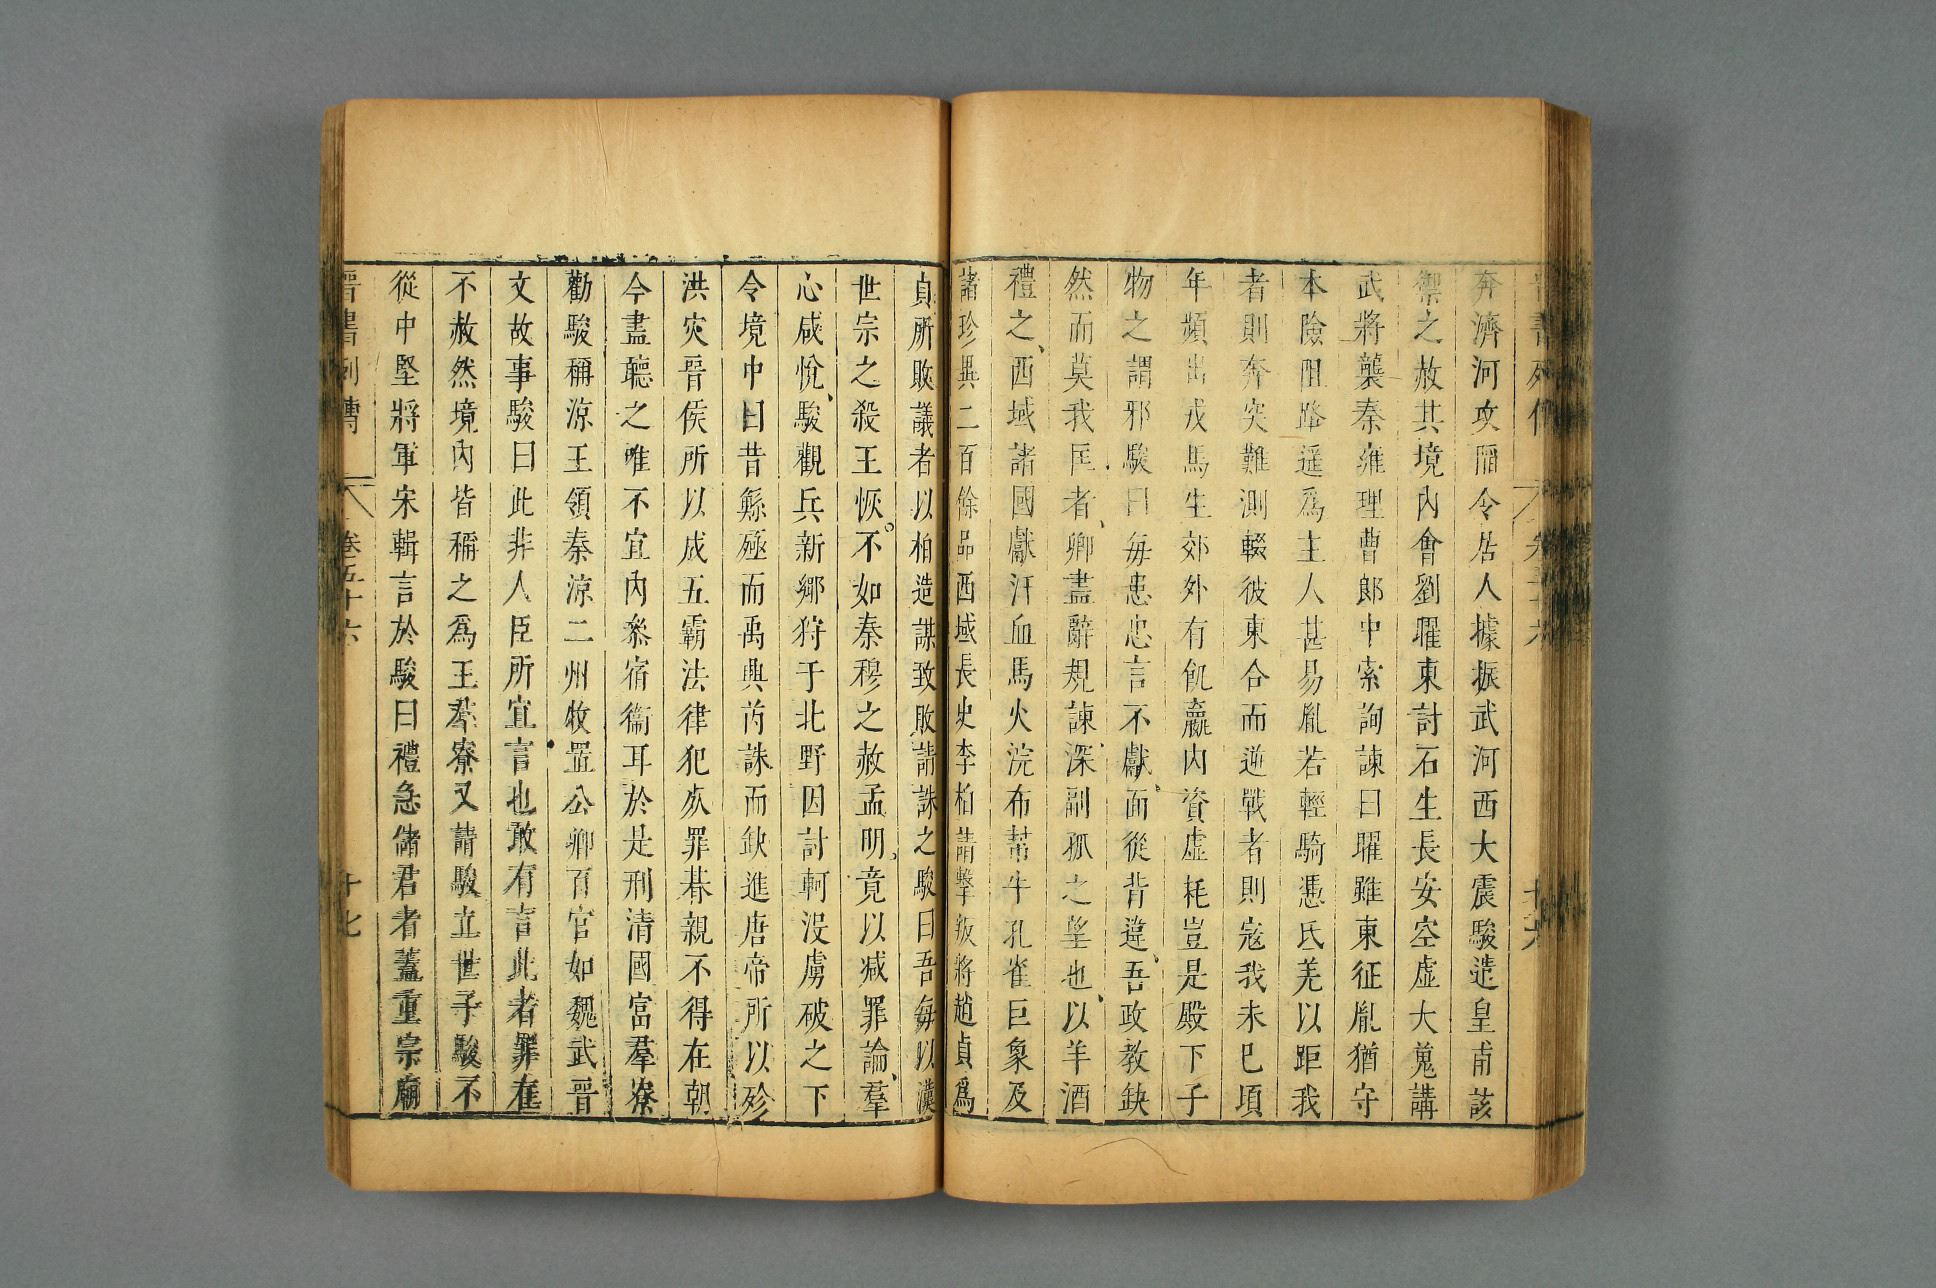 奔濟河攻陷令居人據振武河西大震駿遣皇甫該
禦之赦其境內會劉曜東討石生長安空虛大蒐講
武將襲秦雍理曹郎中索詢諫曰曜雖東征胤猶守
本險阻路遥爲主人甚易胤若輕騎憑氐羌以距我
者則奔突難測輟彼東合而逆戰者則寇我未已頃
年頻出戎馬生郊外有飢羸內資虛耗豈是殿下子
物之謂邪駿曰每患忠言不獻面從背違吾政教缺
然而莫我匡者卿盡辭規諫深副孤之望也以羊酒
禮之西域諸國獻汗血馬火浣布犎牛孔雀巨象及
諸珍異二百餘品西域長史李柏請擊叛將趙貞爲
貞所敗議者以柏造謀致敗請誅之駿曰吾每以漢
世宗之殺王恢不如秦穆之赦孟明竟以減罪論羣
心咸悅駿觀兵新鄉狩于北野因討軻沒虜破之下
令境中曰昔鯀殛而禹興芮誅而缺進唐帝所以殄
洪災晉侯所以成五霸法律犯死罪朞親不得在朝
今盡聽之唯不宜內叅宿衞耳於是刑清國富羣寮
勸駿稱涼王領秦涼二州牧置公卿百官如魏武晉
文故事駿曰此非人臣所宜言也敢有言此者罪在
不赦然境內皆稱之爲王羣寮又請駿立世子駿不
從中堅將軍宋輯言於駿曰禮急儲君者蓋重宗廟
晉書列傳 卷五十六 十七